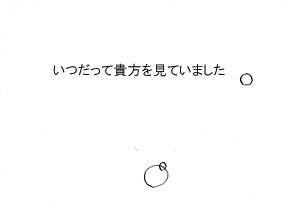 いつだって貴方を見ていました